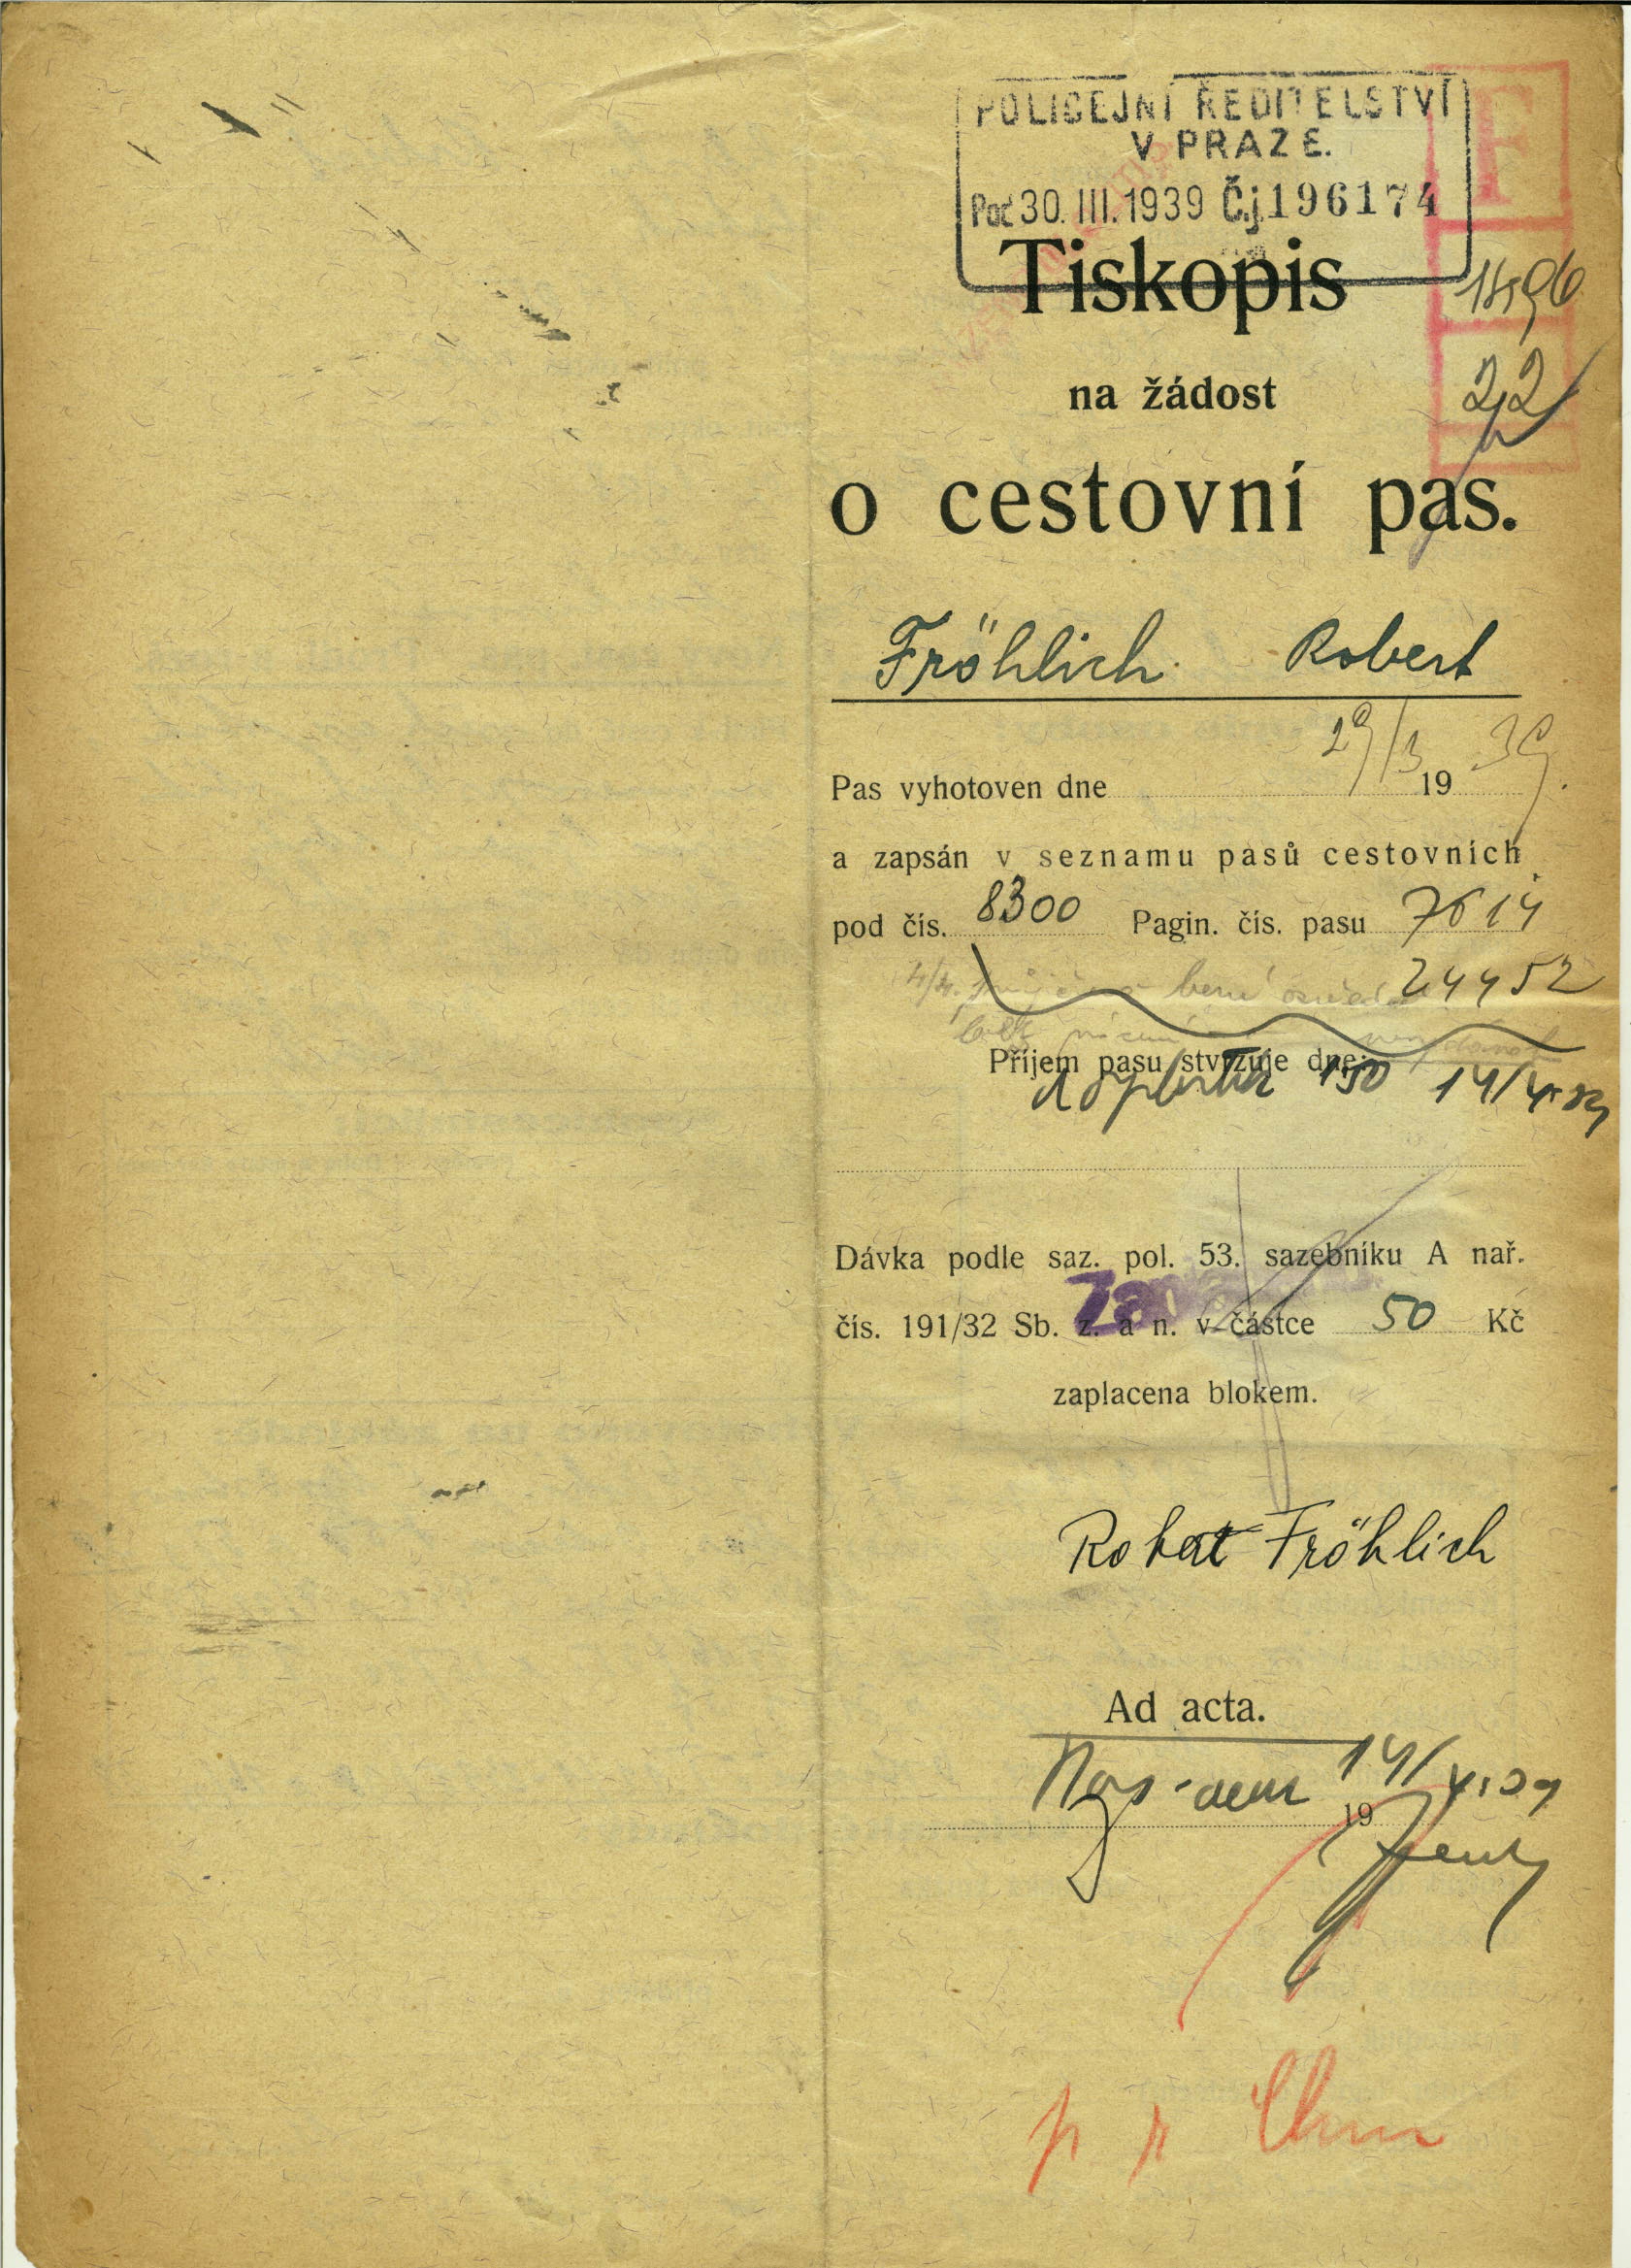 POLICEJNÍ ŘEDITELSTVÍ
V PRAZE.
Poč 30. III. 1939 Č.j 196174
F
Tiskopis
22
na žádost
o cestovní pas.
Fröhlich Robert
Pas vyhotoven dne 29/3 1939.
a zapsán v seznamu pasů cestovních
pod čís. 8300 Pagin. čís. pasu 7614
24452
Příjem pasu stvrzuje dne:
150 14/4.39
Dávka podle saz. pol. 53. sazebníku A nař.
čís. 191/32 Sb. z. a n. v částce 50 Kč
zaplacena blokem.
Robert Fröhlich
Ad acta.
14/4.39
19